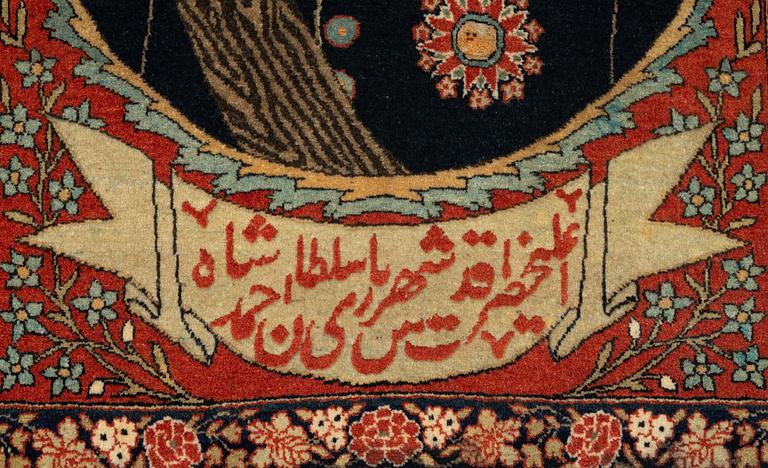 اعلیحضرت اقدس شهریاری سلطان احمد شاه